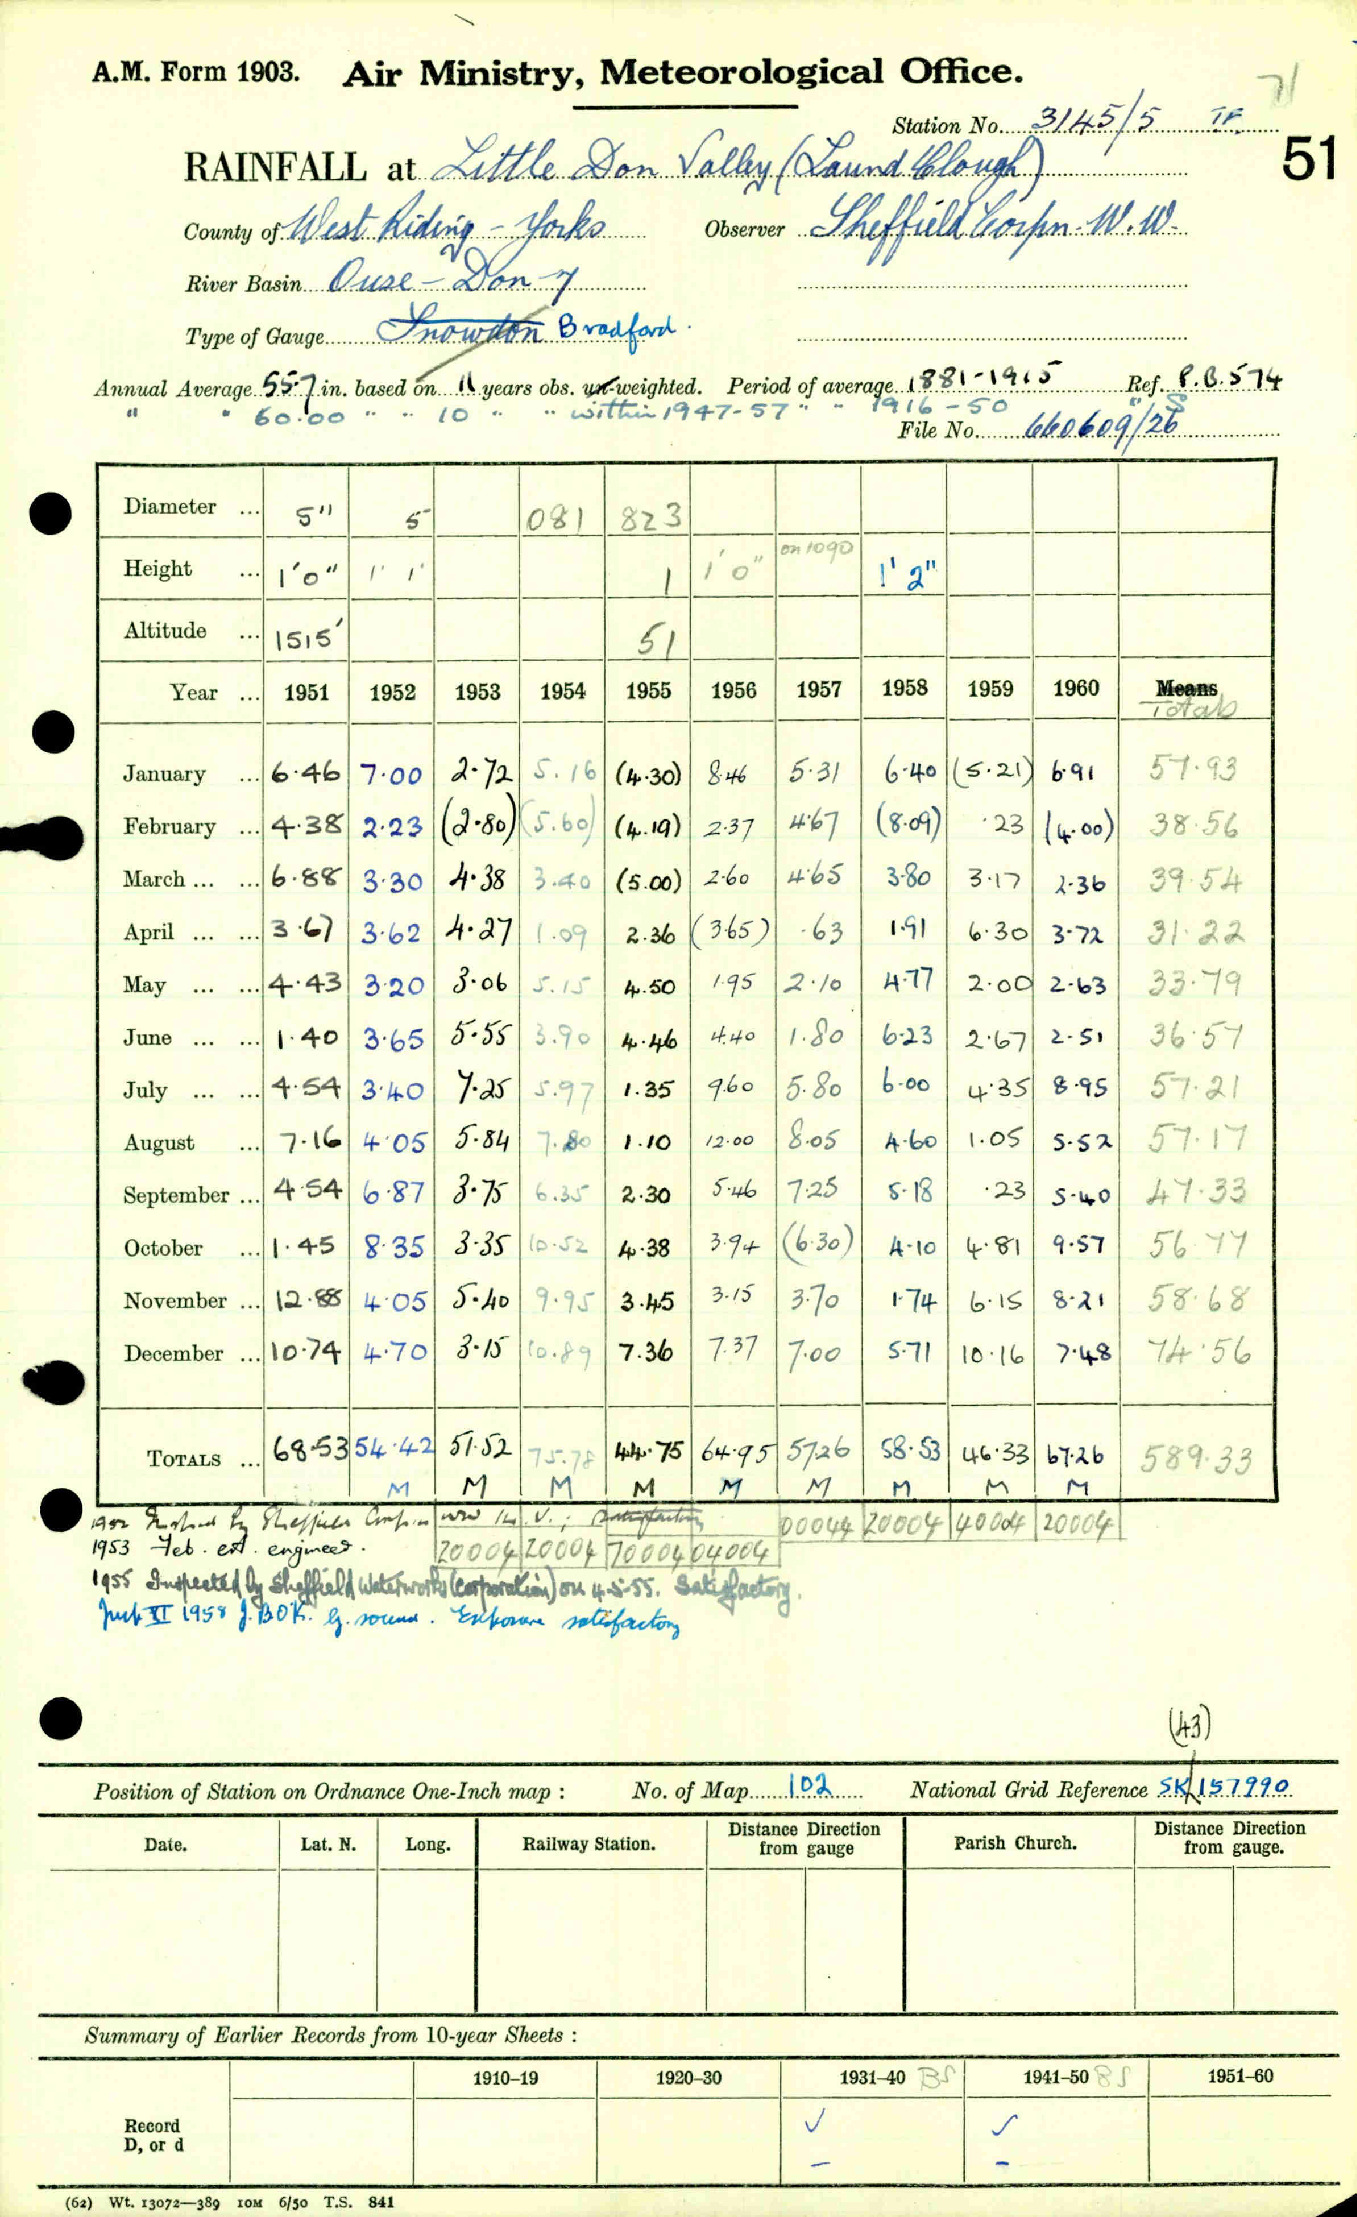 A.M. Form 1903. Air Ministry, Meteorological Office.
71
Station No. 3145/5 T.F.
51
RAINFALL at Little Don Valley (Laund Clough)
County of West Riding - Yorks Observer Sheffield Corpn. W.W.
River Basin Ouse - Don - 7
Type of Gauge Snowdon Bradford.
Annual Average 55.7 in. based on 11 years obs. un-weighted. Period of average 1881-1915 Ref. P.B. 574
" " 60.00 " " 10 " " within 1947-57 " " 1916-50 " S
File No. 660609/26
Diameter ... 5" 5 081 823
Height ... 1'0" 1' 1' 1 1'0" on 1090 1'2"
Altitude ... 1515' 51
Year ... 1951 1952 1953 1954 1955 1956 1957 1958 1959 1960 Means
Totals
January ... 6.46 7.00 2.72 5.16 (4.30) 8.46 5.31 6.40 (5.21) 6.91 57.93
February ... 4.38 2.23 (2.80) (5.60) (4.19) 2.37 4.67 (8.09) .23 (4.00) 38.56
March ... ... 6.88 3.30 4.38 3.40 (5.00) 2.60 4.65 3.80 3.17 2.36 39.54
April ... ... 3.67 3.62 4.27 1.09 2.36 (3.65) .63 1.91 6.30 3.72 31.22
May ... ... 4.43 3.20 3.06 5.15 4.50 1.95 2.10 4.77 2.00 2.63 33.79
June ... ... 1.40 3.65 5.55 3.90 4.46 4.40 1.80 6.23 2.67 2.51 36.57
July ... ... 4.54 3.40 7.25 5.97 1.35 9.60 5.80 6.00 4.35 8.95 57.21
August ... 7.16 4.05 5.84 7.80 1.10 12.00 8.05 4.60 1.05 5.52 57.17
September ... 4.54 6.87 3.75 6.35 2.30 5.46 7.25 5.18 .23 5.40 47.33
October ... 1.45 8.35 3.35 10.52 4.38 3.94 (6.30) 4.10 4.81 9.57 56.77
November ... 12.88 4.05 5.40 9.95 3.45 3.15 3.70 1.74 6.15 8.21 58.68
December ... 10.74 4.70 3.15 10.89 7.36 7.37 7.00 5.71 10.16 7.48 74.56
TOTALS ... 68.53 54.42 51.52 75.78 44.75 64.95 57.26 58.53 46.33 67.26 589.33
M M M M M M M M M
1952 Inspected by Sheffield Corpn satisfactory 00044 20004 40004 20004
1953 Feb. est. engineer. 20004 20004 70004 04004
1955 Inspected by Sheffield Waterworks (Corporation) on 4-5-55. Satisfactory.
Insp. VI 1958 J.BOK. G. sound. Exposure satisfactory
(43)
Position of Station on Ordnance One-Inch map : No. of Map 102 National Grid Reference SK 157990
Date. Lat. N. Long. Railway Station. Distance from Direction gauge Parish Church. Distance from Direction gauge.
Summary of Earlier Records from 10-year Sheets :
1910–19 1920–30 1931–40 BS 1941–50 BS 1951–60
Record ✓ ✓
D, or d – –
(62) Wt. 13072—389 10M 6/50 T.S. 841